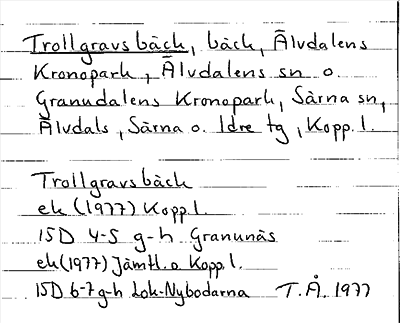 Trollgravsbäck, bäck, Älvdalens
Kronopark, Älvdalens sn o.
Granudalens Kronopark, Särna sn,
Älvdals, Särna o. Idre tg, Kopp. l.
Trollgravsbäck
ek (1977) Kopp. l.
15D 4-5 g-h Granunäs
ek (1977) Jämtl. o Kopp. l.
15D 6-7 g-h Lok-Nybodarna T.Å. 1977